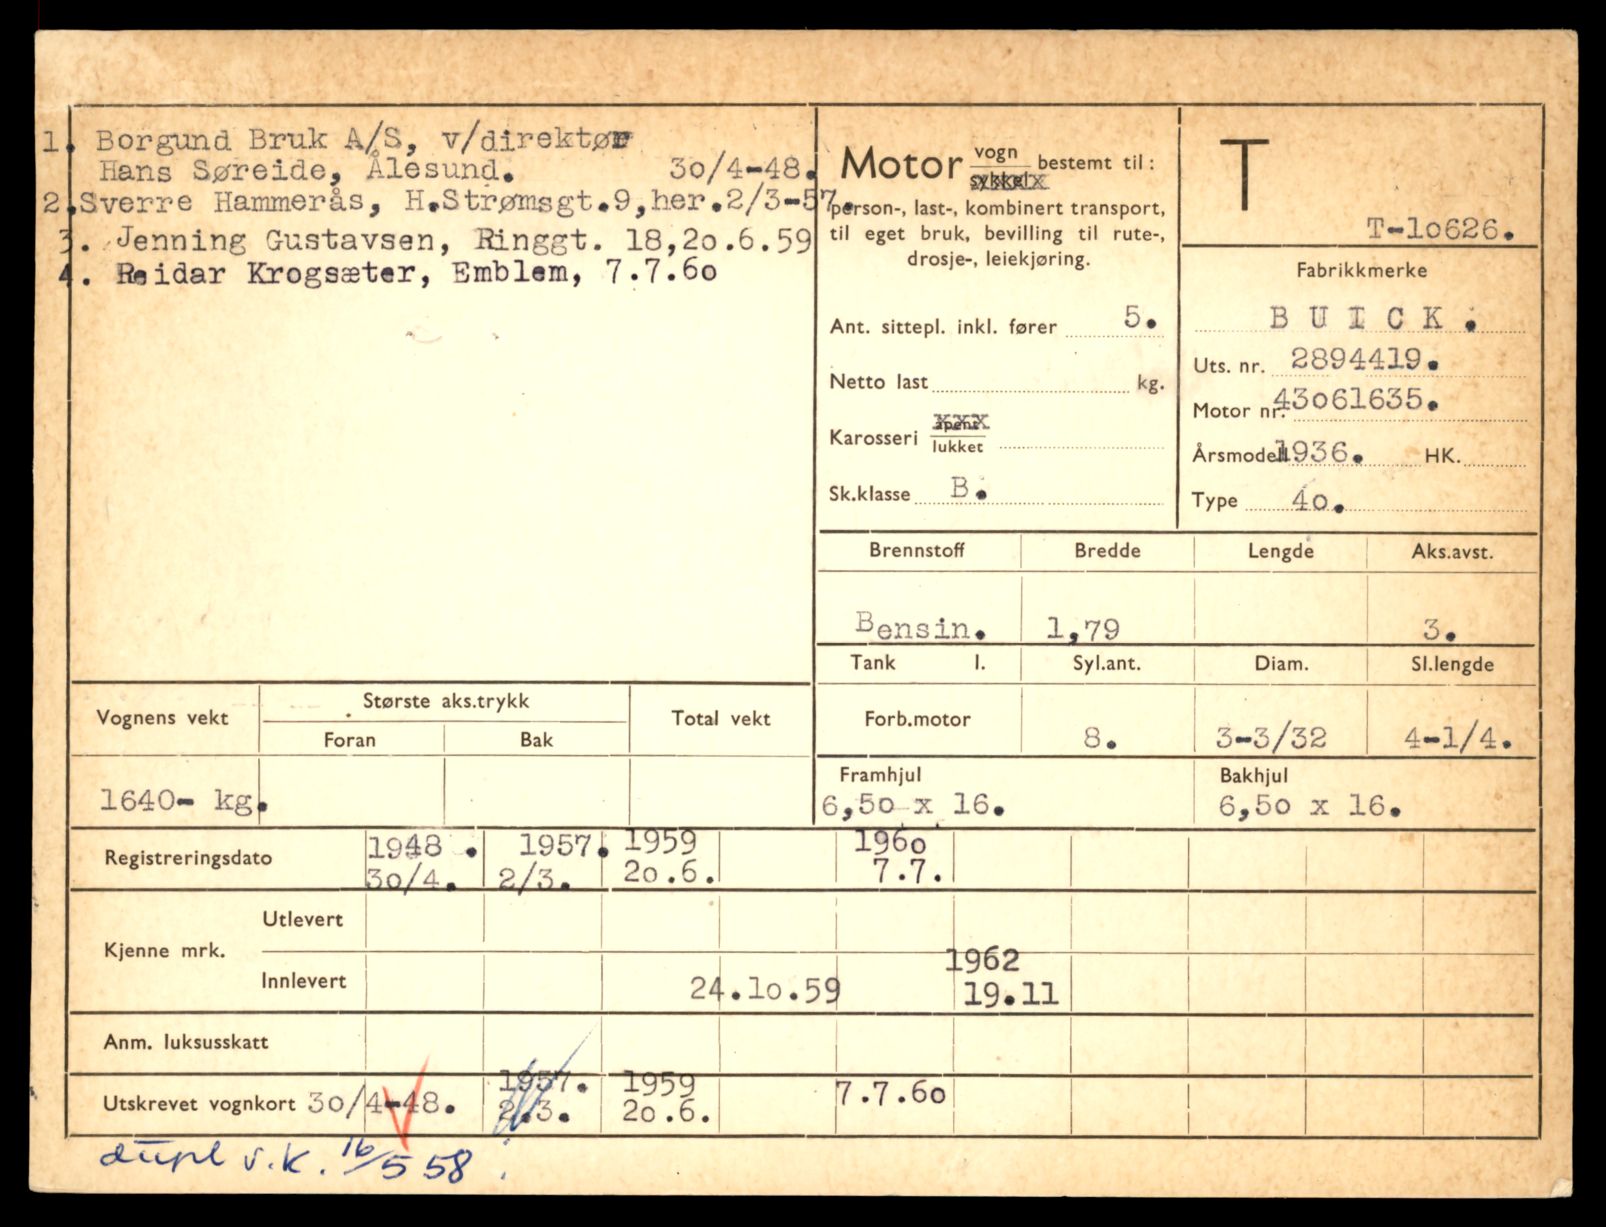 1. Borgund Bruk A/S, v/direktør
Hans Søreide, Ålesund. 30/4-48.
2.Sverre Hammerås, H.Strømsgt.9,her.2/3-57.
3. Jenning Gustavsen, Ringgt. 18,20.6.59
4. Reidar Krogsæter, Emblem, 7.7.60
Motor vogn sykkel bestemt til:
person-, last-, kombinert transport,
til eget bruk, bevilling til rute-,
drosje-, leiekjøring.
Ant. sittepl. inkl. fører 5.
Netto last kg.
Karosseri åpent
lukket
Sk.klasse B.
T
T-10626.
Fabrikkmerke
BUICK.
Uts. nr. 2894419.
Motor nr. 43061635.
Årsmodell 1936. HK.
Type 40.
Brennstoff Bredde Lengde Aks.avst.
Bensin. 1,79 3.
Tank l. Syl.ant. Diam. Sl.lengde
Forb.motor 8. 3-3/32 4-1/4.
Framhjul Bakhjul
6,50 x 16. 6,50 x 16.
Vognens vekt Største aks.trykk Total vekt
Foran Bak
1640- kg.
Registreringsdato 1948. 1957. 1959 1960
30/4. 2/3. 20.6. 7.7.
Kjenne mrk. Utlevert
Innlevert 24.10.59 1962
19.11
Anm. luksusskatt
Utskrevet vognkort 30/4-48. 1957. 1959 7.7.60
2.3. 20.6.
dupl v.k. 16/5 58.